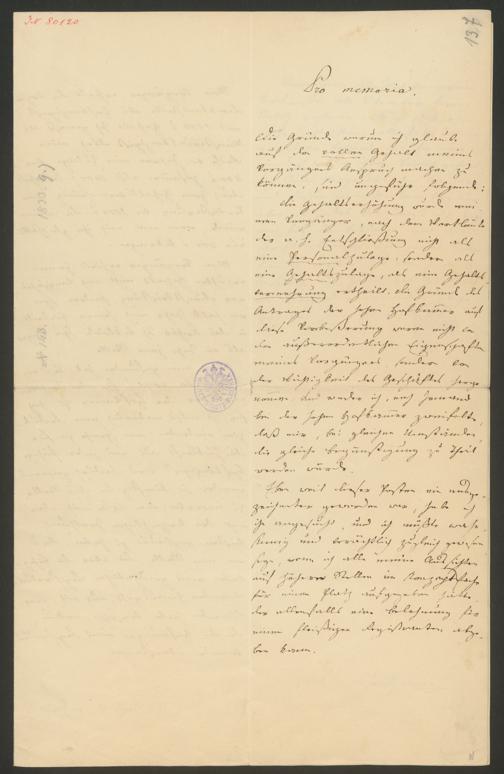 J.N 80120
137
Pro memoria.
Die Gründe warum ich glaube
auf den vollen Gehalt meines
Vorgängers Anspruch machen zu
können, sind ungefähr folgende:
die Gehaltserhöhung wurde mei-
nem Vorgänger, nach dem Wortlaute
der a. h. Entschließung nicht als
eine Personalzulage, sondern als
eine Gehaltszulage, als eine Gehalts-
vermehrung ertheilt. die Gründe des
Antrages der hohen Hofkammer auf
diese Verbesserung waren nicht von
den außerordentlichen Eigenschaften
meines Vorgängers sondern von
der Wichtigkeit des Geschäftes herge-
nommen. und weder ich, noch jemand
bei der hohen Hofkammer zweifelte,
daß mir, bei gleichen Umständen,
die gleiche Begünstigung zu Theil
werden würde.
Eben weil dieser Posten ein ausge-
zeichneter geworden war, habe ich
ihn angesucht, und ich müßte wahn-
sinnig und verächtlich zugleich gewesen
seyn, wenn ich alle meine Aussichten
auf höhere Stellen im Konzeptsfache
für einen Platz aufgegeben hätte,
der allenfalls eine Belohnung für
einen fleißigen Registranten abge-
ben kann.